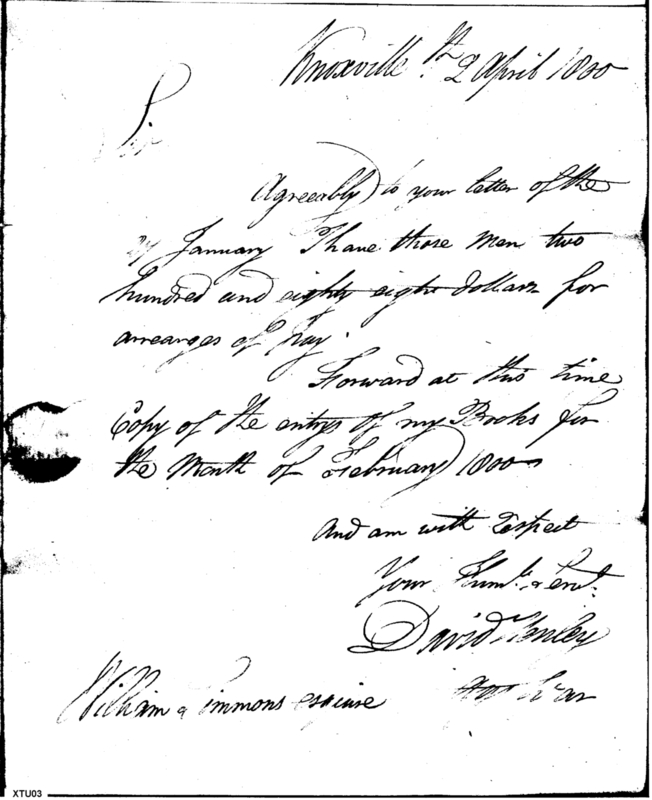 Knoxville 2 April 1800
Sir
Agreeably to your letter of the
January I have those men two
hundred and eighty eight dollars for
arrearges of pay.
Forward at this time
Copy of the entrys of my Books for
the Month of February 1800
And am with respect
Your Humb. Servt.
David Henley
William Simmons esquire
War
XTU03